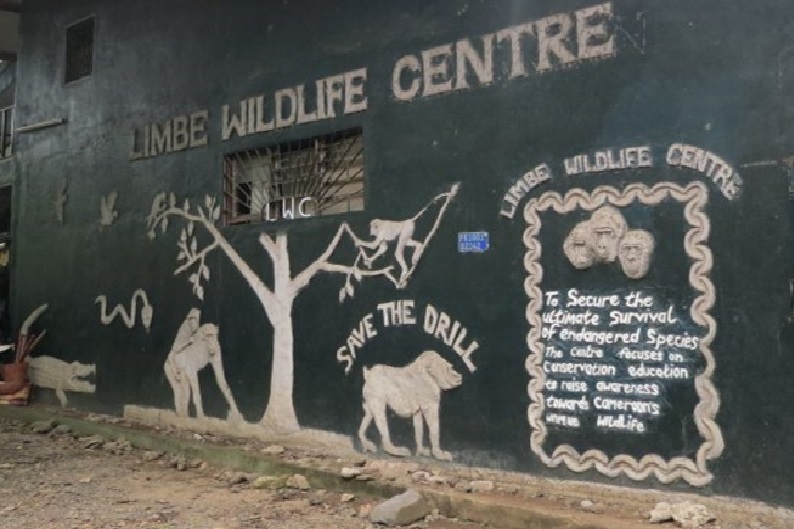 LIMBE WILDLIFE CENTRE
LWC
SAVE THE DRILL
LIMBE WILDLIFE CENTRE
To Secure the
ultimate Survival
of endangered Species
The centre focuses on
Conservation education
to raise awareness
towards Cameroon's
unique Wildlife